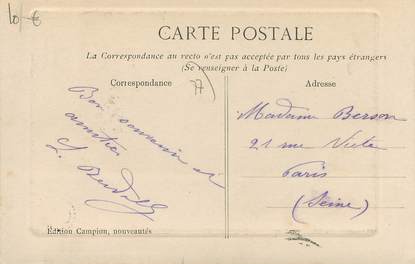 10 €
CARTE POSTALE
La Correspondance au recto n'est pas acceptée par tous les pays étrangers
(Se renseigner à la Poste)
Correspondance
77
Adresse
Bon souvenir et
amitiés
Madame Berson
21 rue
Paris
(Seine)
Edition Campion, nouveautés